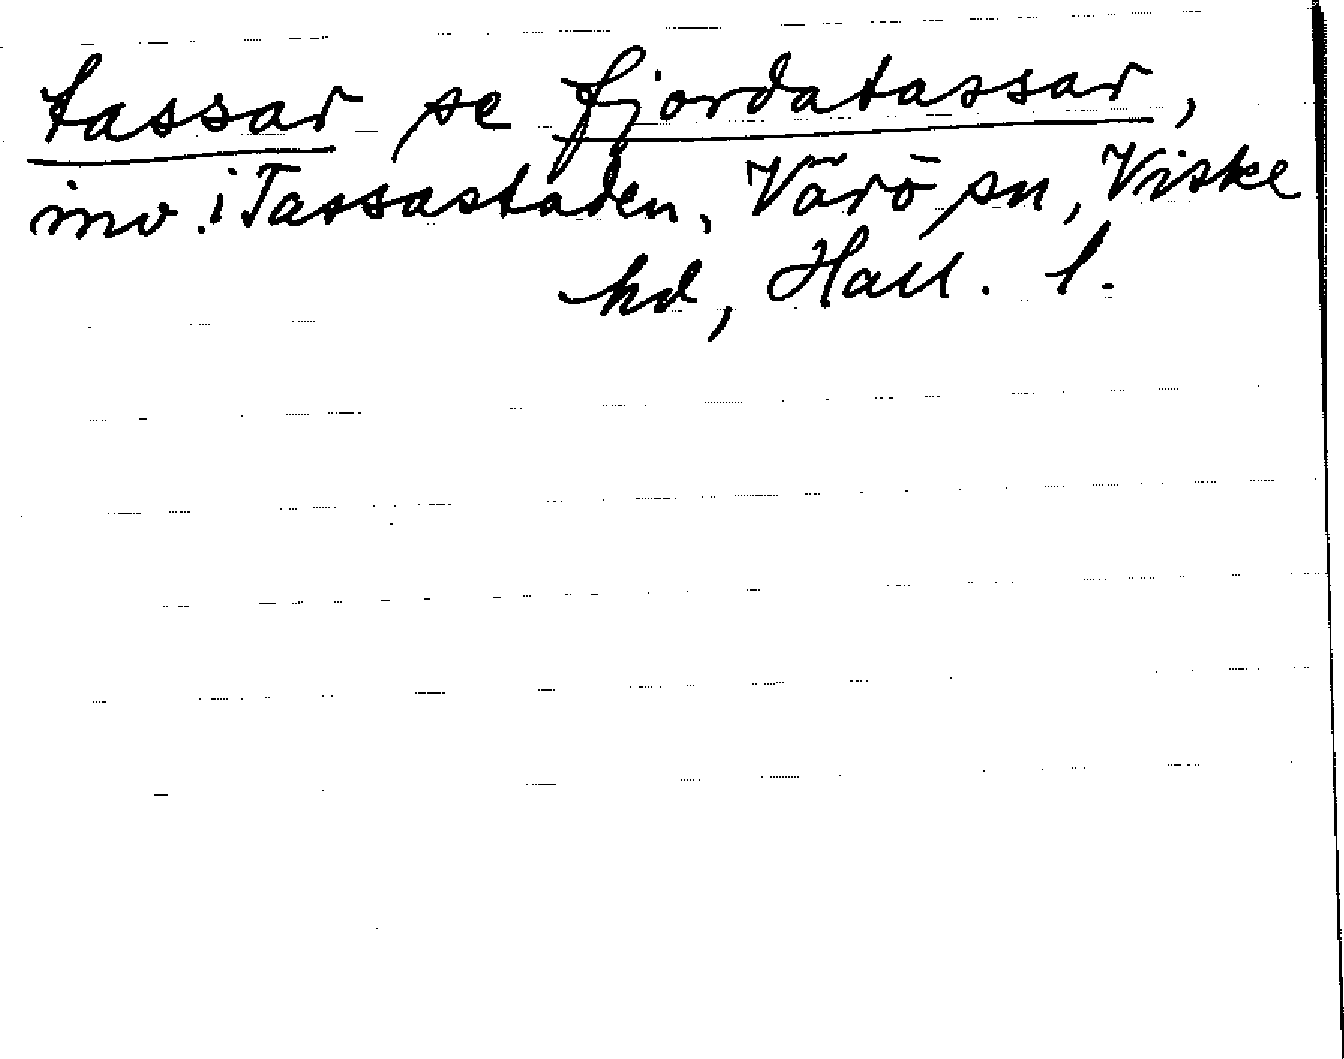 tassar se fjordatassar,
inv. i Tassastaden, Värö sn, Viske
hd, Hall. l.